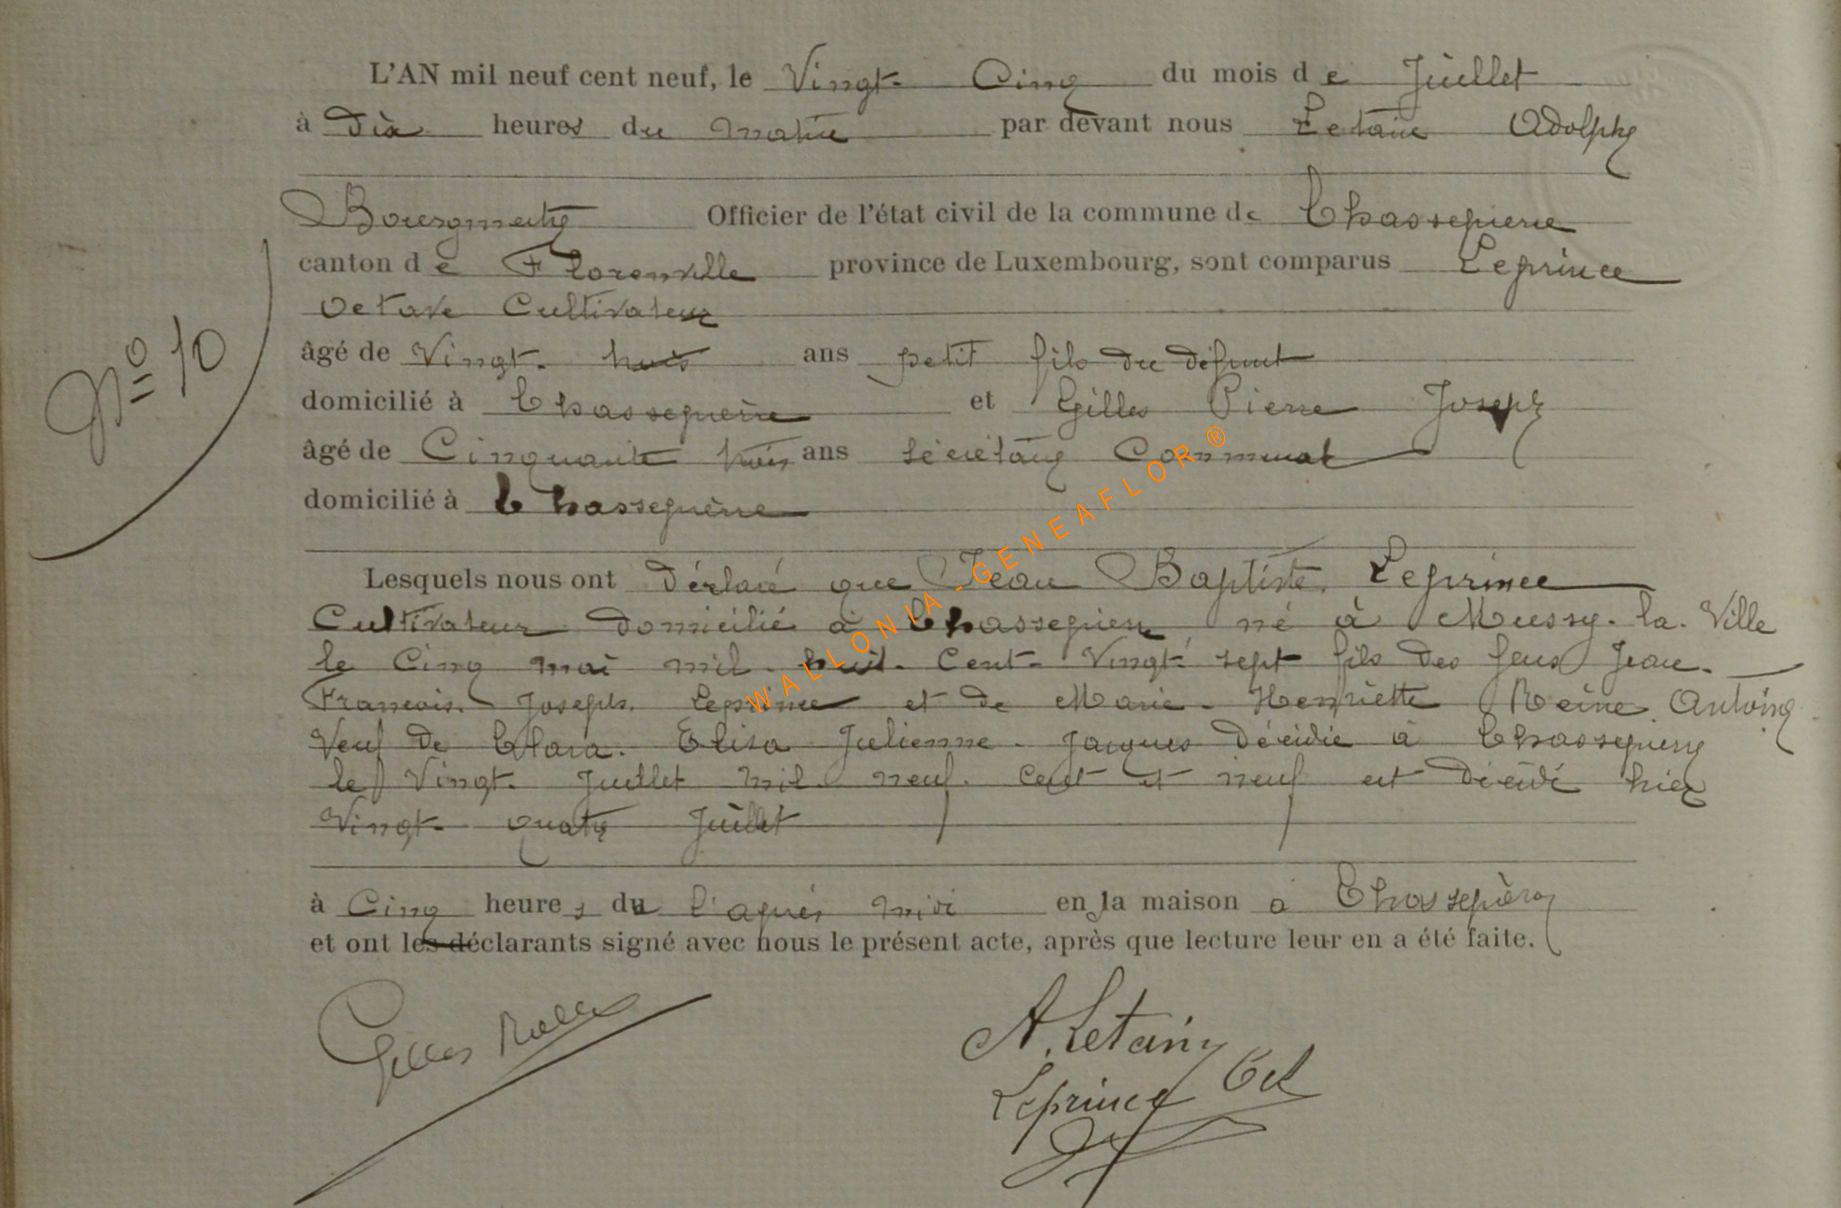 L'AN mil neuf cent neuf, le Vingt- Cinq du mois de Juillet
à Dix heures du matin par devant nous Letaine Adolphe
Bourgmestre Officier de l'état civil de la commune de Chassepierre
canton de Florenville province de Luxembourg, sont comparus Leprince
Octave Cultivateur
N° 10
âgé de Vingt- ans petit fils du défunt
domicilié à Chassepierre et Gilles Pierre Joseph
âgé de Cinquante ans Sécrétaire Communal
domicilié à Chassepierre
Lesquels nous ont Déclaré que Jean Baptiste Leprince
Cultivateur domicilié à Chassepierre né à Mussy-la-Ville
le Cinq mai mil-huit-Cent-Vingt sept fils des feus Jean-
Francois-Joseph Leprince et de Marie-Henriette Reine Antoine
Veuf de Clara-Elisa Julienne-Jacques Décédée à Chassepierre
le Vingt Juillet mil neuf-Cent et neuf est Décédé hier
Vingt-quatre Juillet
à Cinq heures du l'après midi en la maison à Chassepierre
et ont les déclarants signé avec nous le présent acte, après que lecture leur en a été faite.
Gilles
A. Letaine
Leprince Oct
WALLONIA-GENEAFLOR®